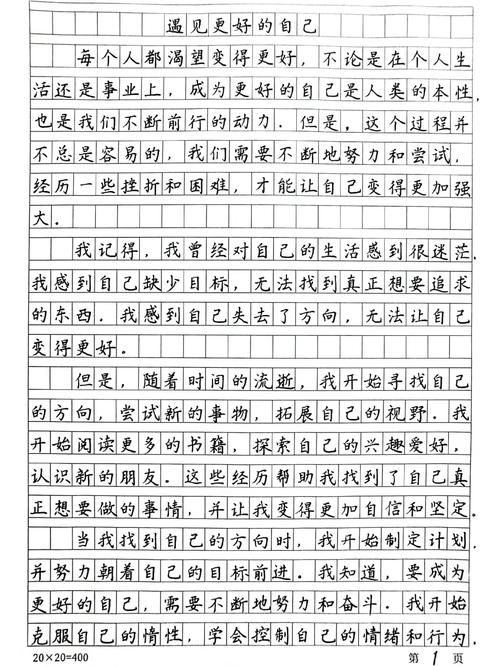 遇见更好的自己
每个人都渴望变得更好，不论是在个人生
活还是事业上，成为更好的自己是人类的本性，
也是我们不断前行的动力．但是，这个过程并
不总是容易的，我们需要不断地努力和尝试，
经历一些挫折和困难，才能让自己变得更加强
大．
我记得，我曾经对自己的生活感到很迷茫．
我感到自己缺少目标，无法找到真正想要追求
的东西．我感到自己失去了方向，无法让自己
变得更好．
但是，随着时间的流逝，我开始寻找自己
的方向，尝试新的事物，拓展自己的视野．我
开始阅读更多的书籍，探索自己的兴趣爱好，
认识新的朋友．这些经历帮助我找到了自己真
正想要做的事情，并让我变得更加自信和坚定．
当我找到自己的方向时，我开始制定计划，
并努力朝着自己的目标前进．我知道，要成为
更好的自己，需要不断地努力和奋斗．我开始
克服自己的惰性，学会控制自己的情绪和行为．
20×20=400 第 1 页